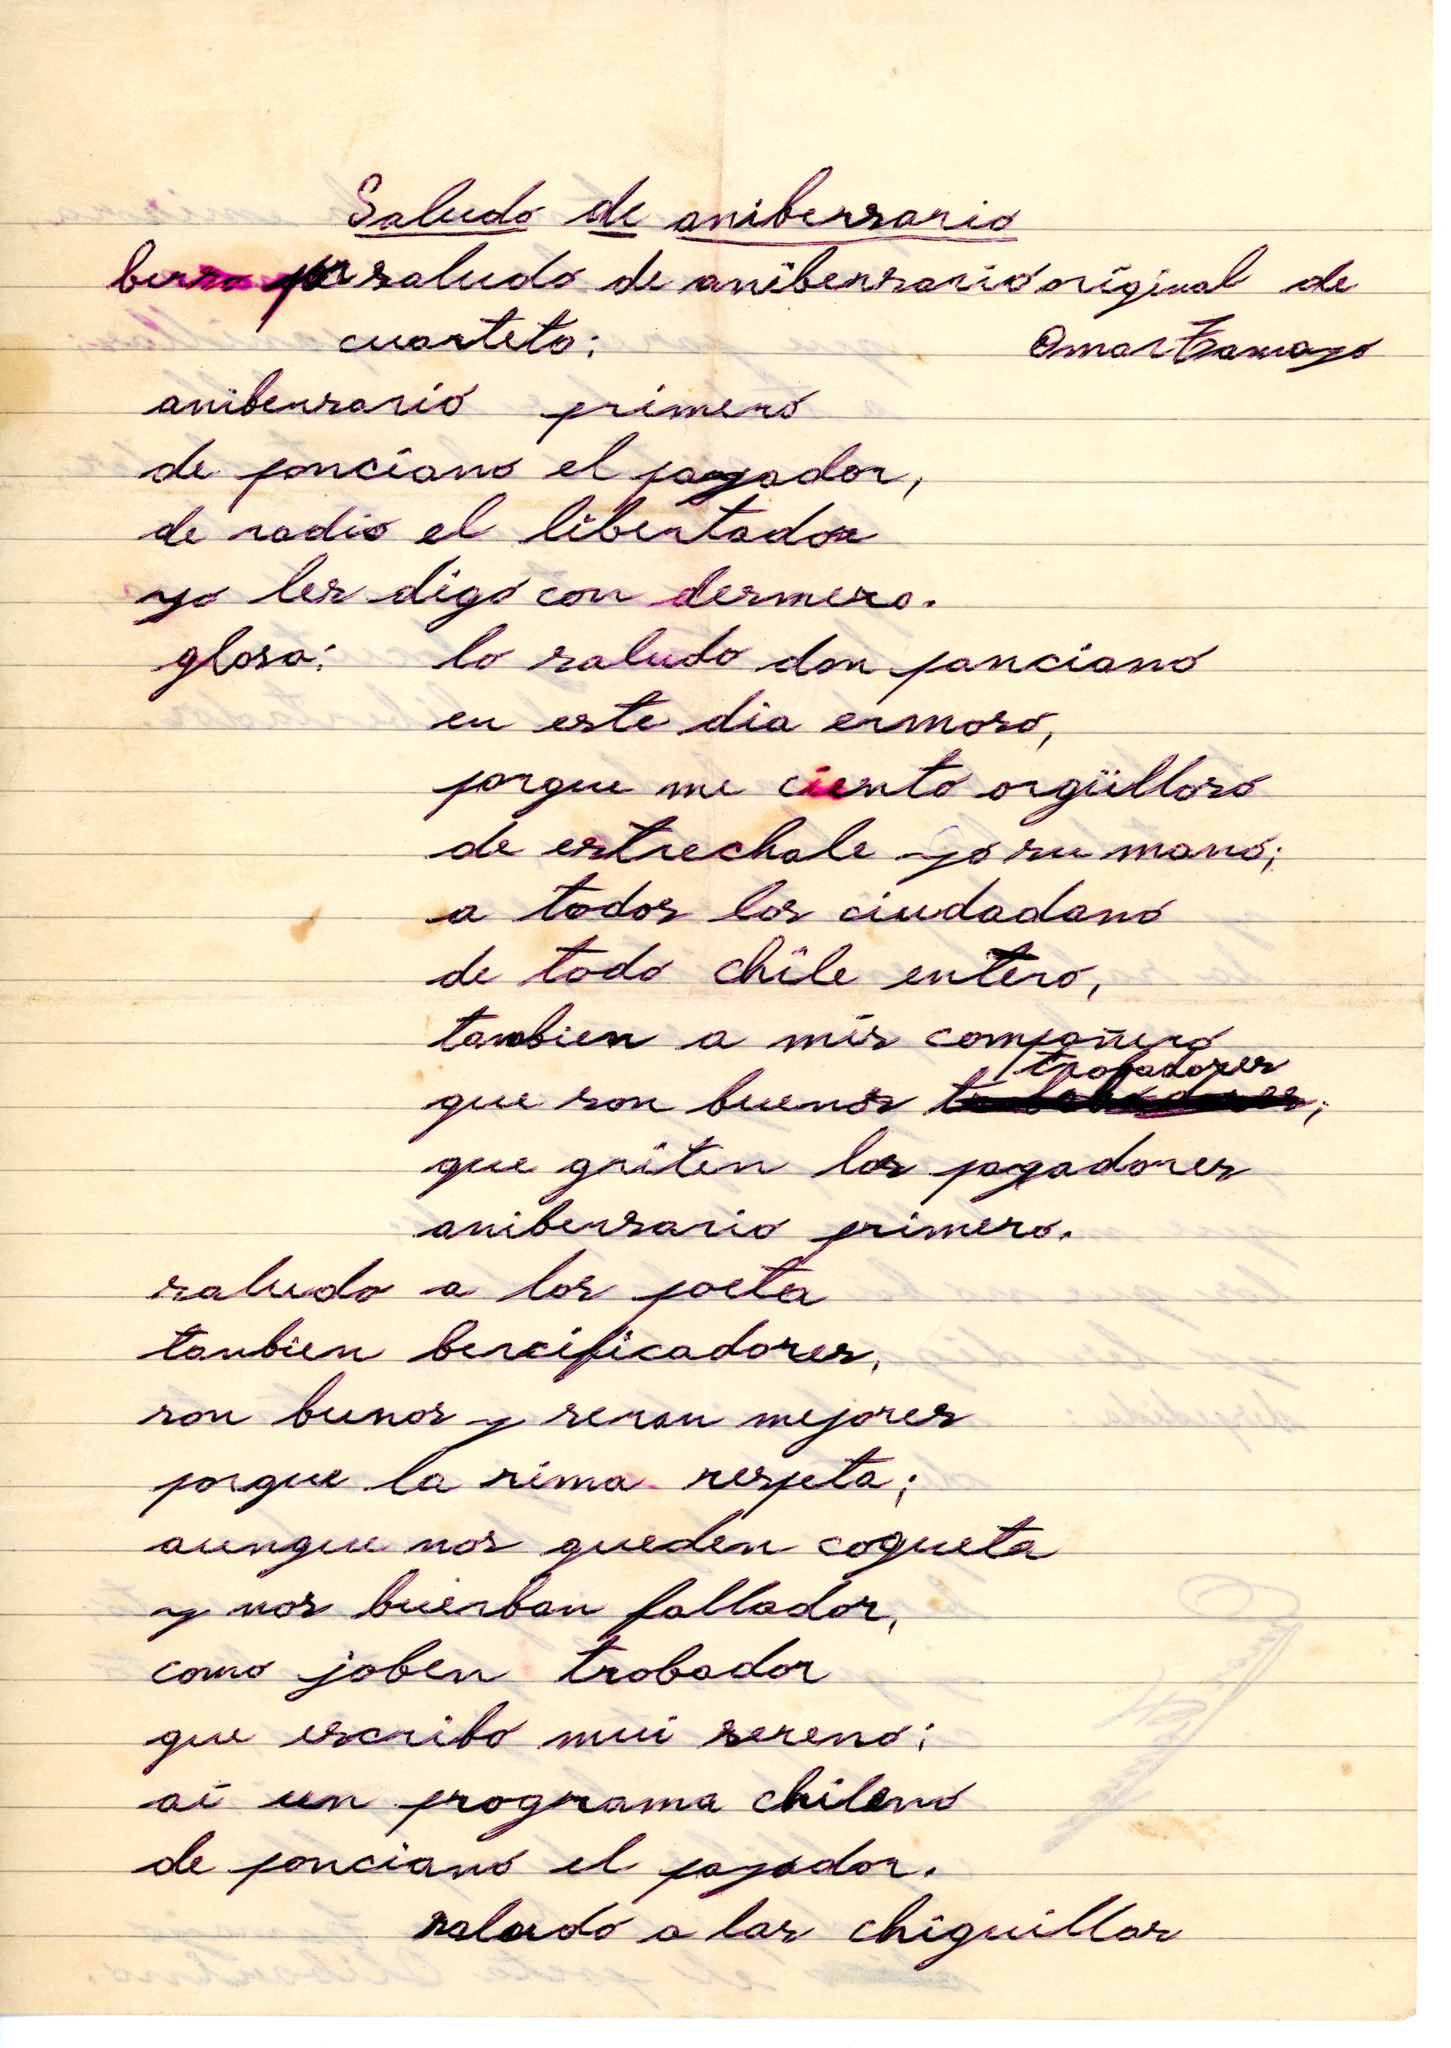 Saludo de anibersario
berso por saludo de anibersario original de
cuarteto: Omar Tamayo
anibersario primero
de ponciano el payador,
de radio el libertador
yo les digo con desmero.
glosa: lo saludo don panciano
en este dia ermoso,
porque me ciento orgülloso
de estrechale yo su mano;
a todos los ciudadano
de todo chile entero,
tambien a mis compañero
trobadores
que son buenos ;
que griten los payadores
anibersario primero.
saludo a los poeta
tanbien bercificadores,
son bunos y seran mejores
porque la rima respeta;
aunque nos queden coqueta
y nos buerban fallador,
como joben trobador
que escribo mui sereno;
ai un programa chileno
de ponciano el payador.
saludo a las chiquillas